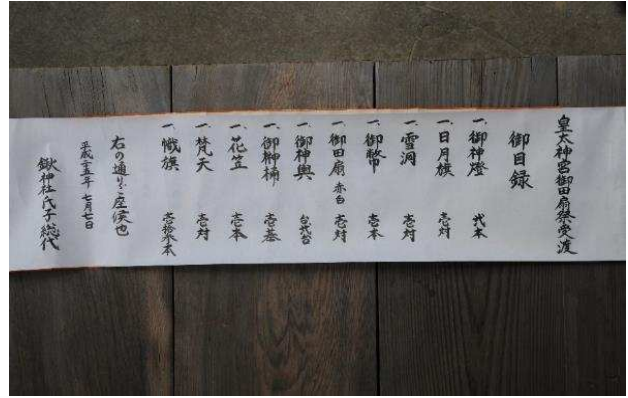 皇大神宮御田扇祭受渡
御目録
一、御神燈 弐本
一、日月旗 壱対
一、雪洞 壱対
一、御幣 壱本
一、御田扇 赤白 壱対
一、御神輿 台
一、御榊桶 壱基
一、花笠 壱本
一、梵天 壱対
一、幟旗 壱拾参本
右の通り御座候也
平成二五年 七月七日
鍬神社氏子総代